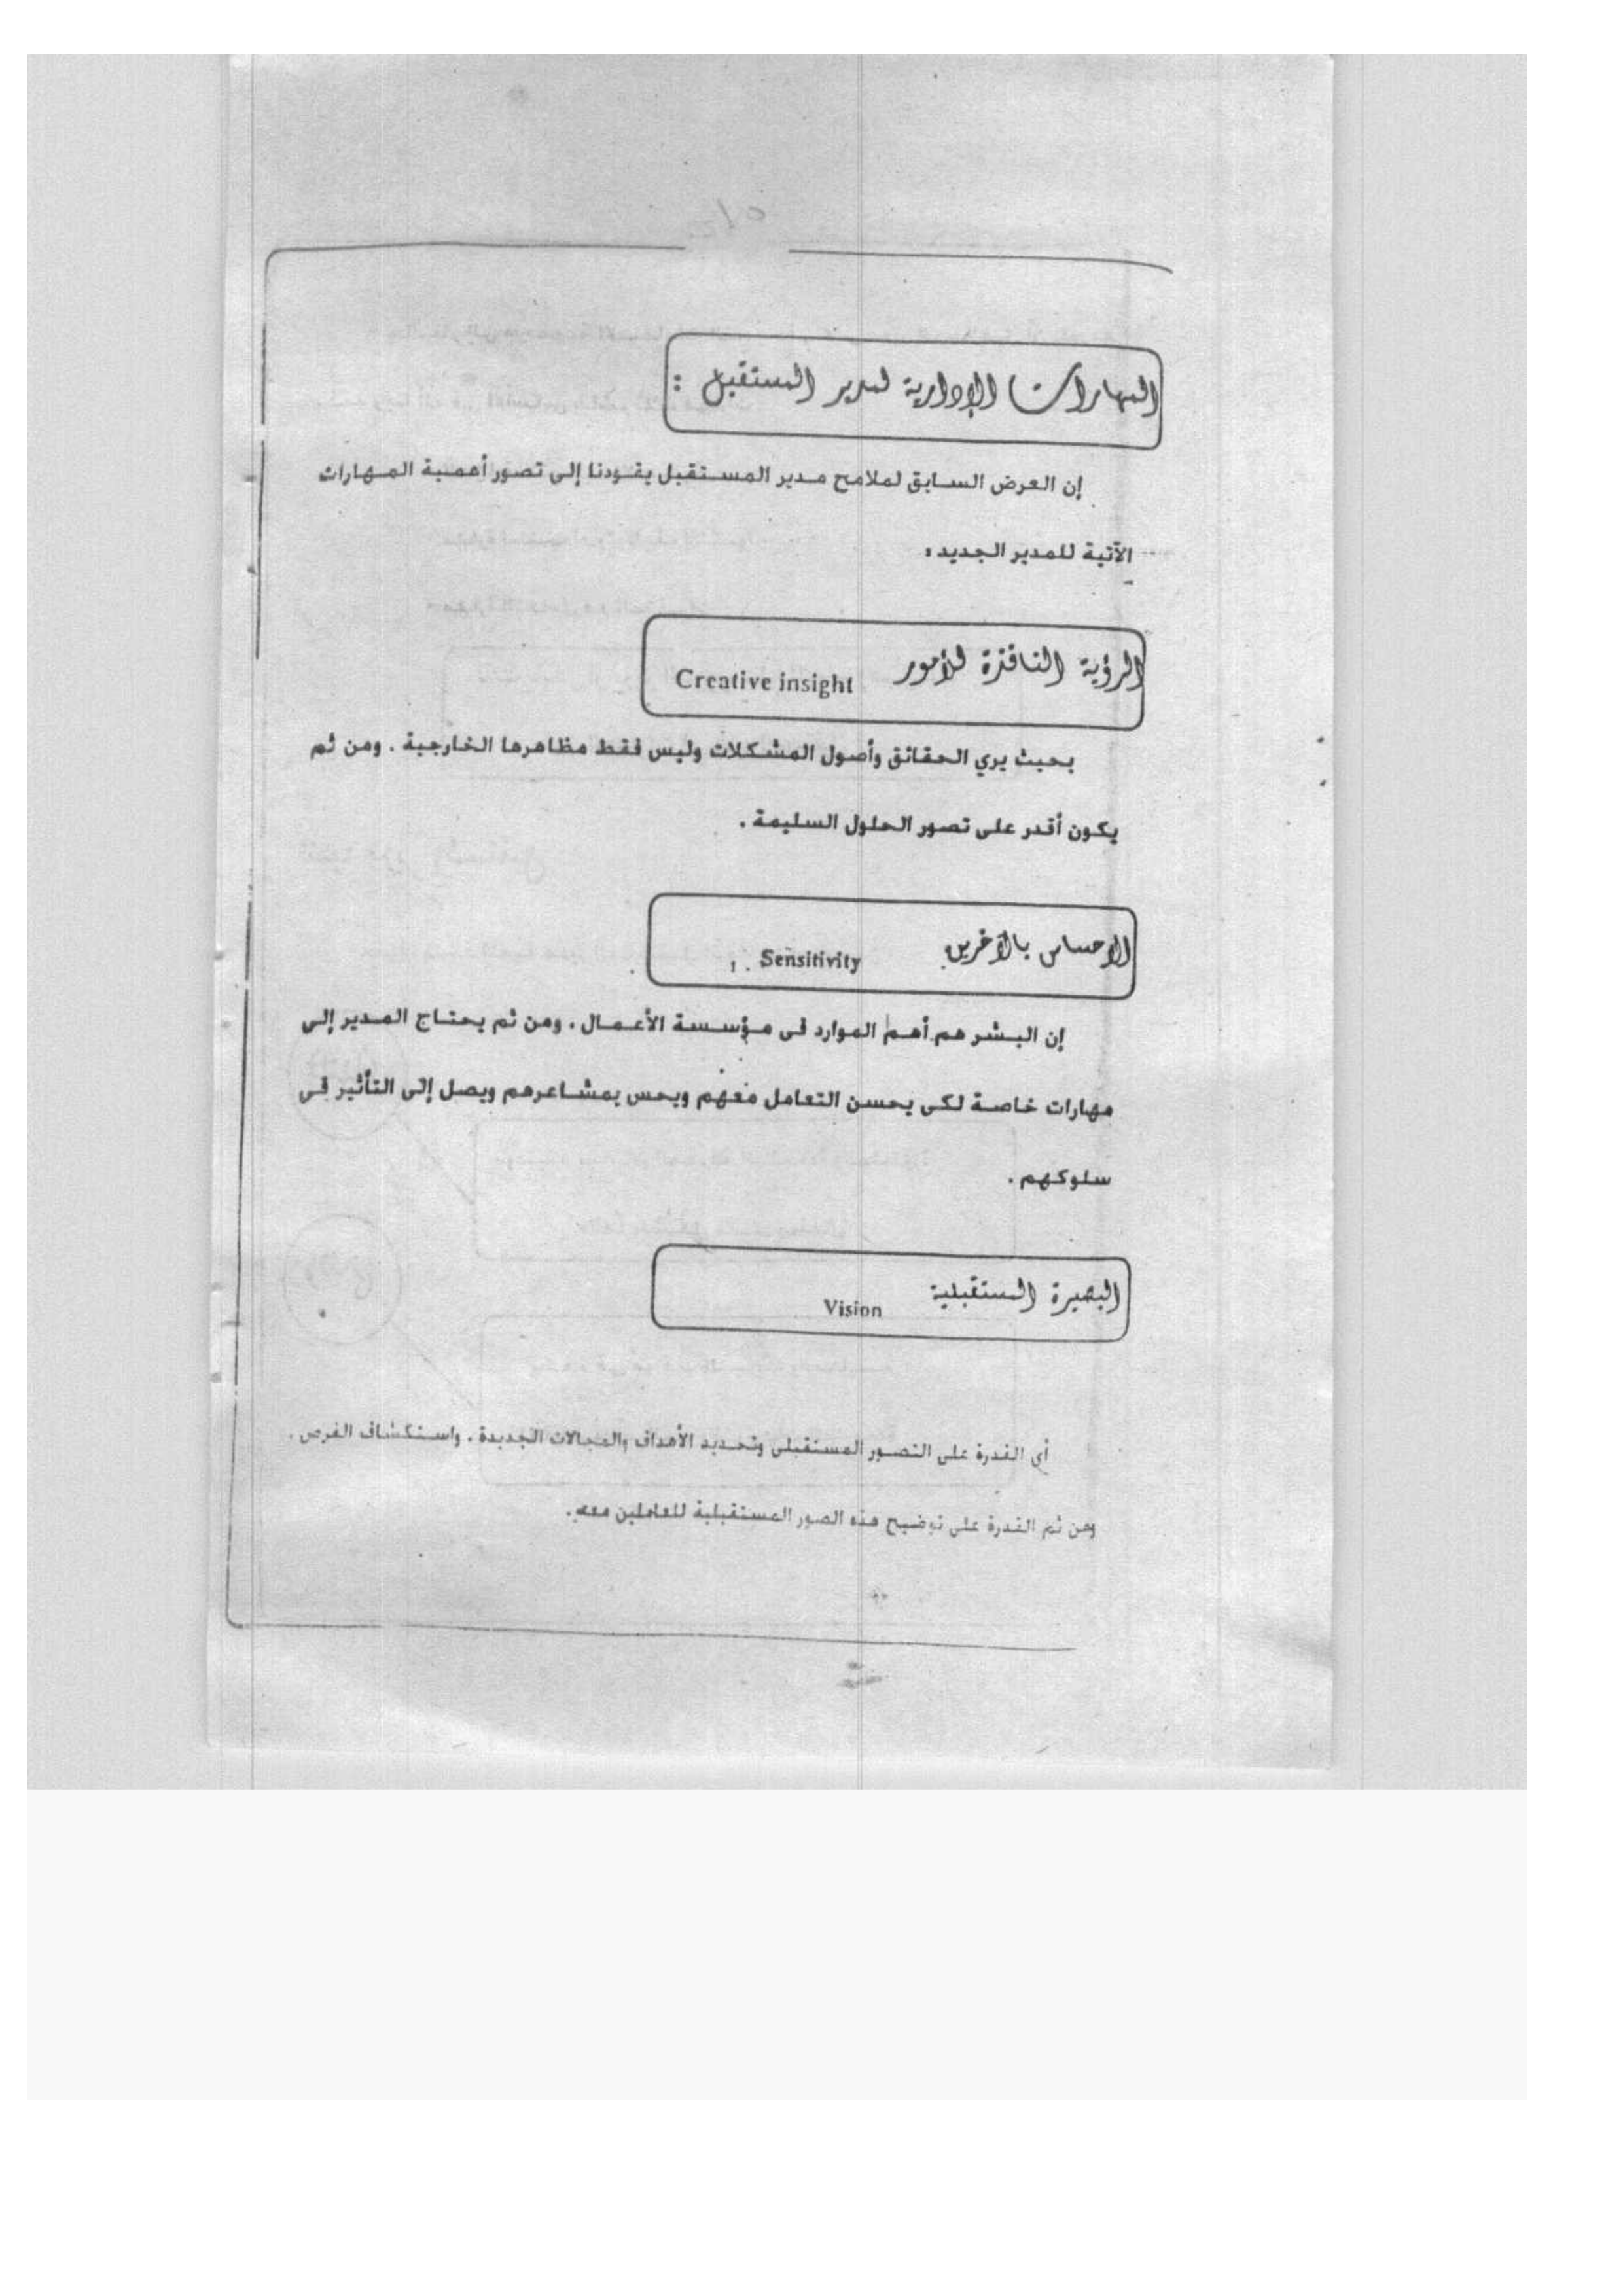 المهارات الإدارية لمدير المستقبل :
إن العرض السابق لملامح مدير المستقبل يقودنا إلى تصور أهمية المهارات
الآتية للمدير الجديد :
الرؤية النافذة للأمور Creative insight
بحيث يري الحقائق وأصول المشكلات وليس فقط مظاهرها الخارجية . ومن ثم
يكون أقدر على تصور الحلول السليمة .
الإحساس بالآخرين Sensitivity
إن البشر هم أهم الموارد فى مؤسسة الأعمال . ومن ثم يحتاج المدير إلى
مهارات خاصة لكى يحسن التعامل معهم ويحس بمشاعرهم ويصل إلى التأثير فى
سلوكهم .
البصيرة المستقبلية Vision
أى القدرة على التصور المستقبلى وتحديد الأهداف والمجالات الجديدة . واستكشاف الفرص .
ومن ثم القدرة على توضيح هذه الصور المستقبلية للعاملين معه.